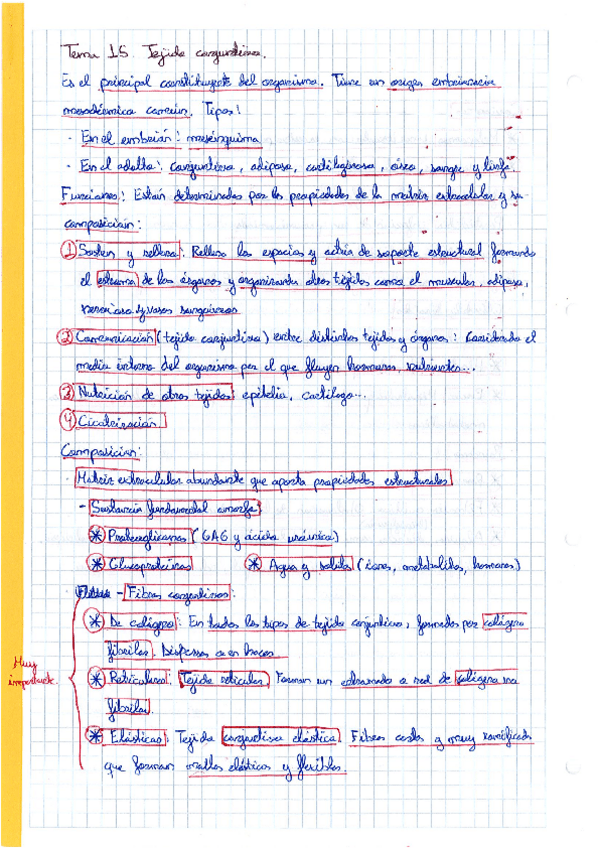 Tema 15. Tejido conjuntivo.
Es el principal constituyente del organismo. Tiene un origen embrionario
mesodérmico común. Tipos:
- En el embrión: mesénquima
- En el adulto: conjuntivo, adiposo, cartilaginoso, óseo, sangre y linfa
Funciones: Están determinadas por las propiedades de la matriz extracelular y su
composición:
① Sostén y relleno: Rellena los espacios y actúa de soporte estructural formando
el estroma de los órganos y organizando otros tejidos como el muscular, adiposo,
nervioso y vasos sanguíneos
② Comunicación (tejido conjuntivo) entre distintos tejidos y órganos: Considerado el
medio interno del organismo por el que fluyen hormonas, nutrientes...
③ Nutrición de otros tejidos: epitelio, cartílago...
④ Cicatrización
Composición:
- Matriz extracelular abundante que aporta propiedades estructurales
- Sustancia fundamental amorfa
* Proteoglicanos (GAG y ácido urónico)
* Glucoproteínas * Agua y solutos (iones, metabolitos, hormonas)
- Fibras conjuntivas:
* De colágeno: En todos los tipos de tejido conjuntivo, formadas por colágeno
fibrilar. Dispersas o en haces
Muy importante.
* Reticulares: Tejido reticular. Forman un entramado o red de colágeno no
fibrilar.
* Elásticas: Tejido conjuntivo elástico. Fibras cortas y muy ramificadas
que forman mallas elásticas y flexibles.